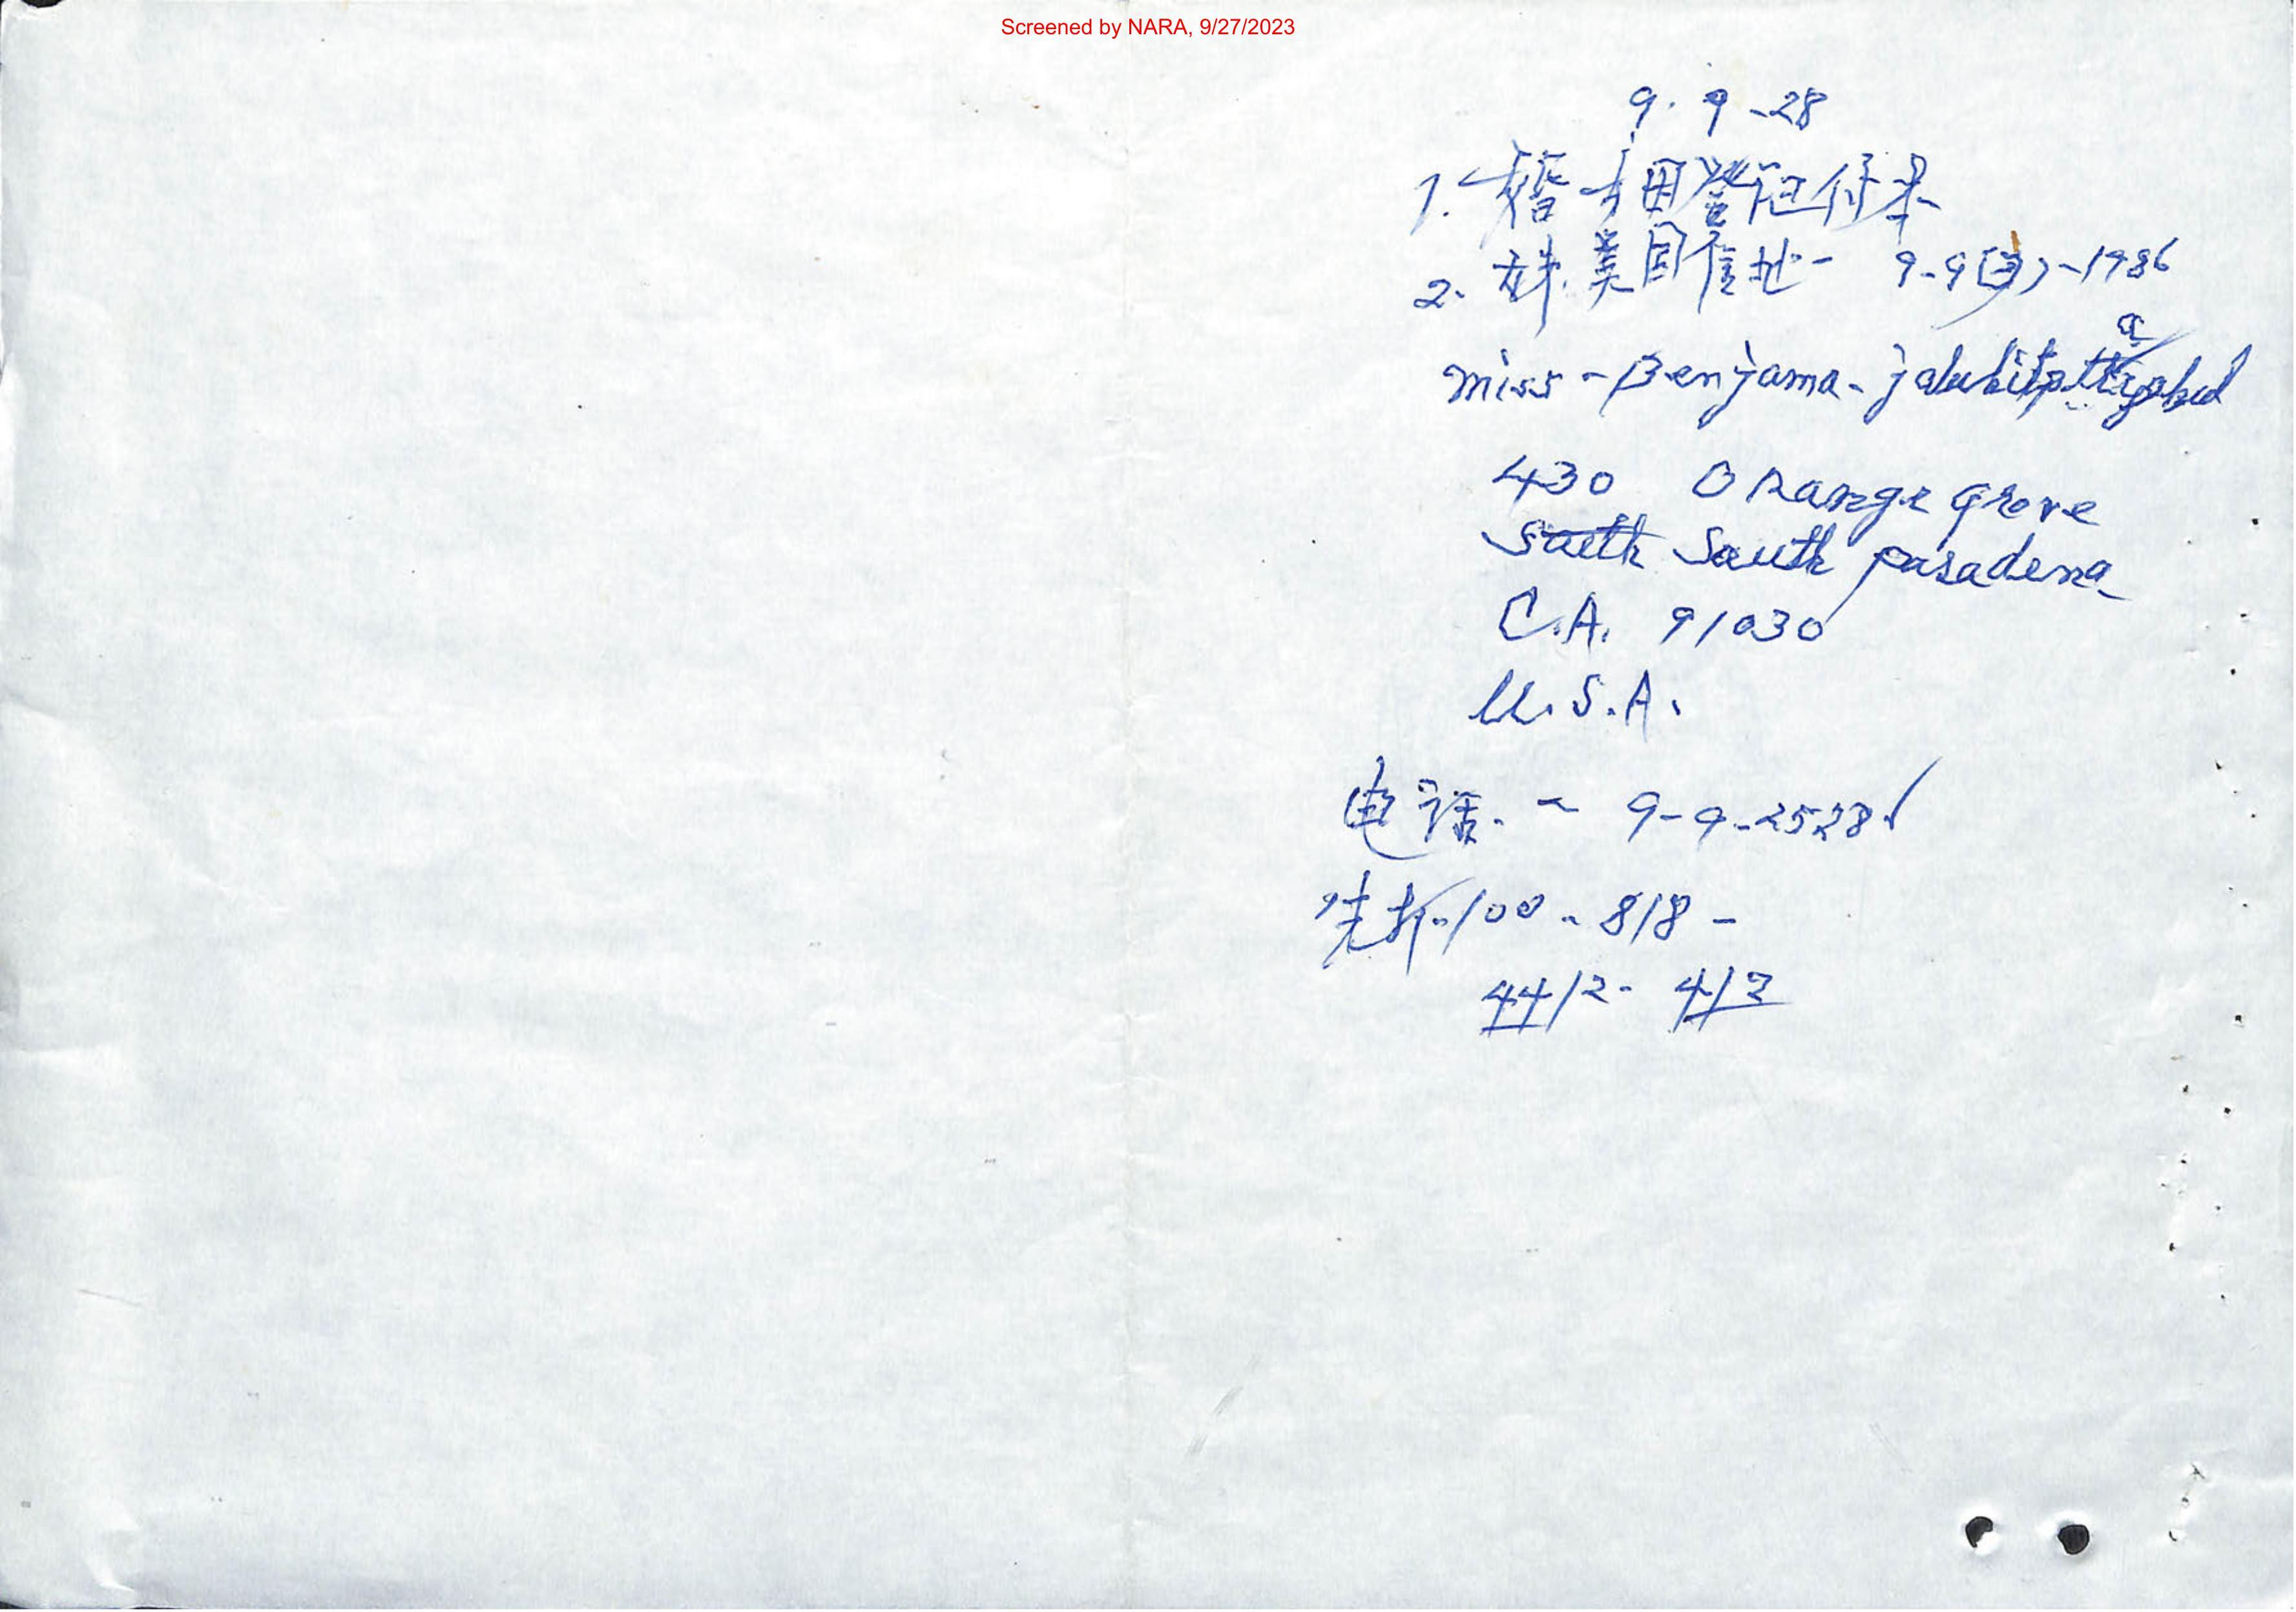 Screened by NARA, 9/27/2023
9. 9 -28
1. 用登记付来
2. 妹 美国住地 - 9-9 -1986
miss - Benjama -
430 Orange grove
South South pasadena
C.A. 91030
U.S.A.
电话. - 9-9-2528
先打-100 - 818 -
4412 - 412